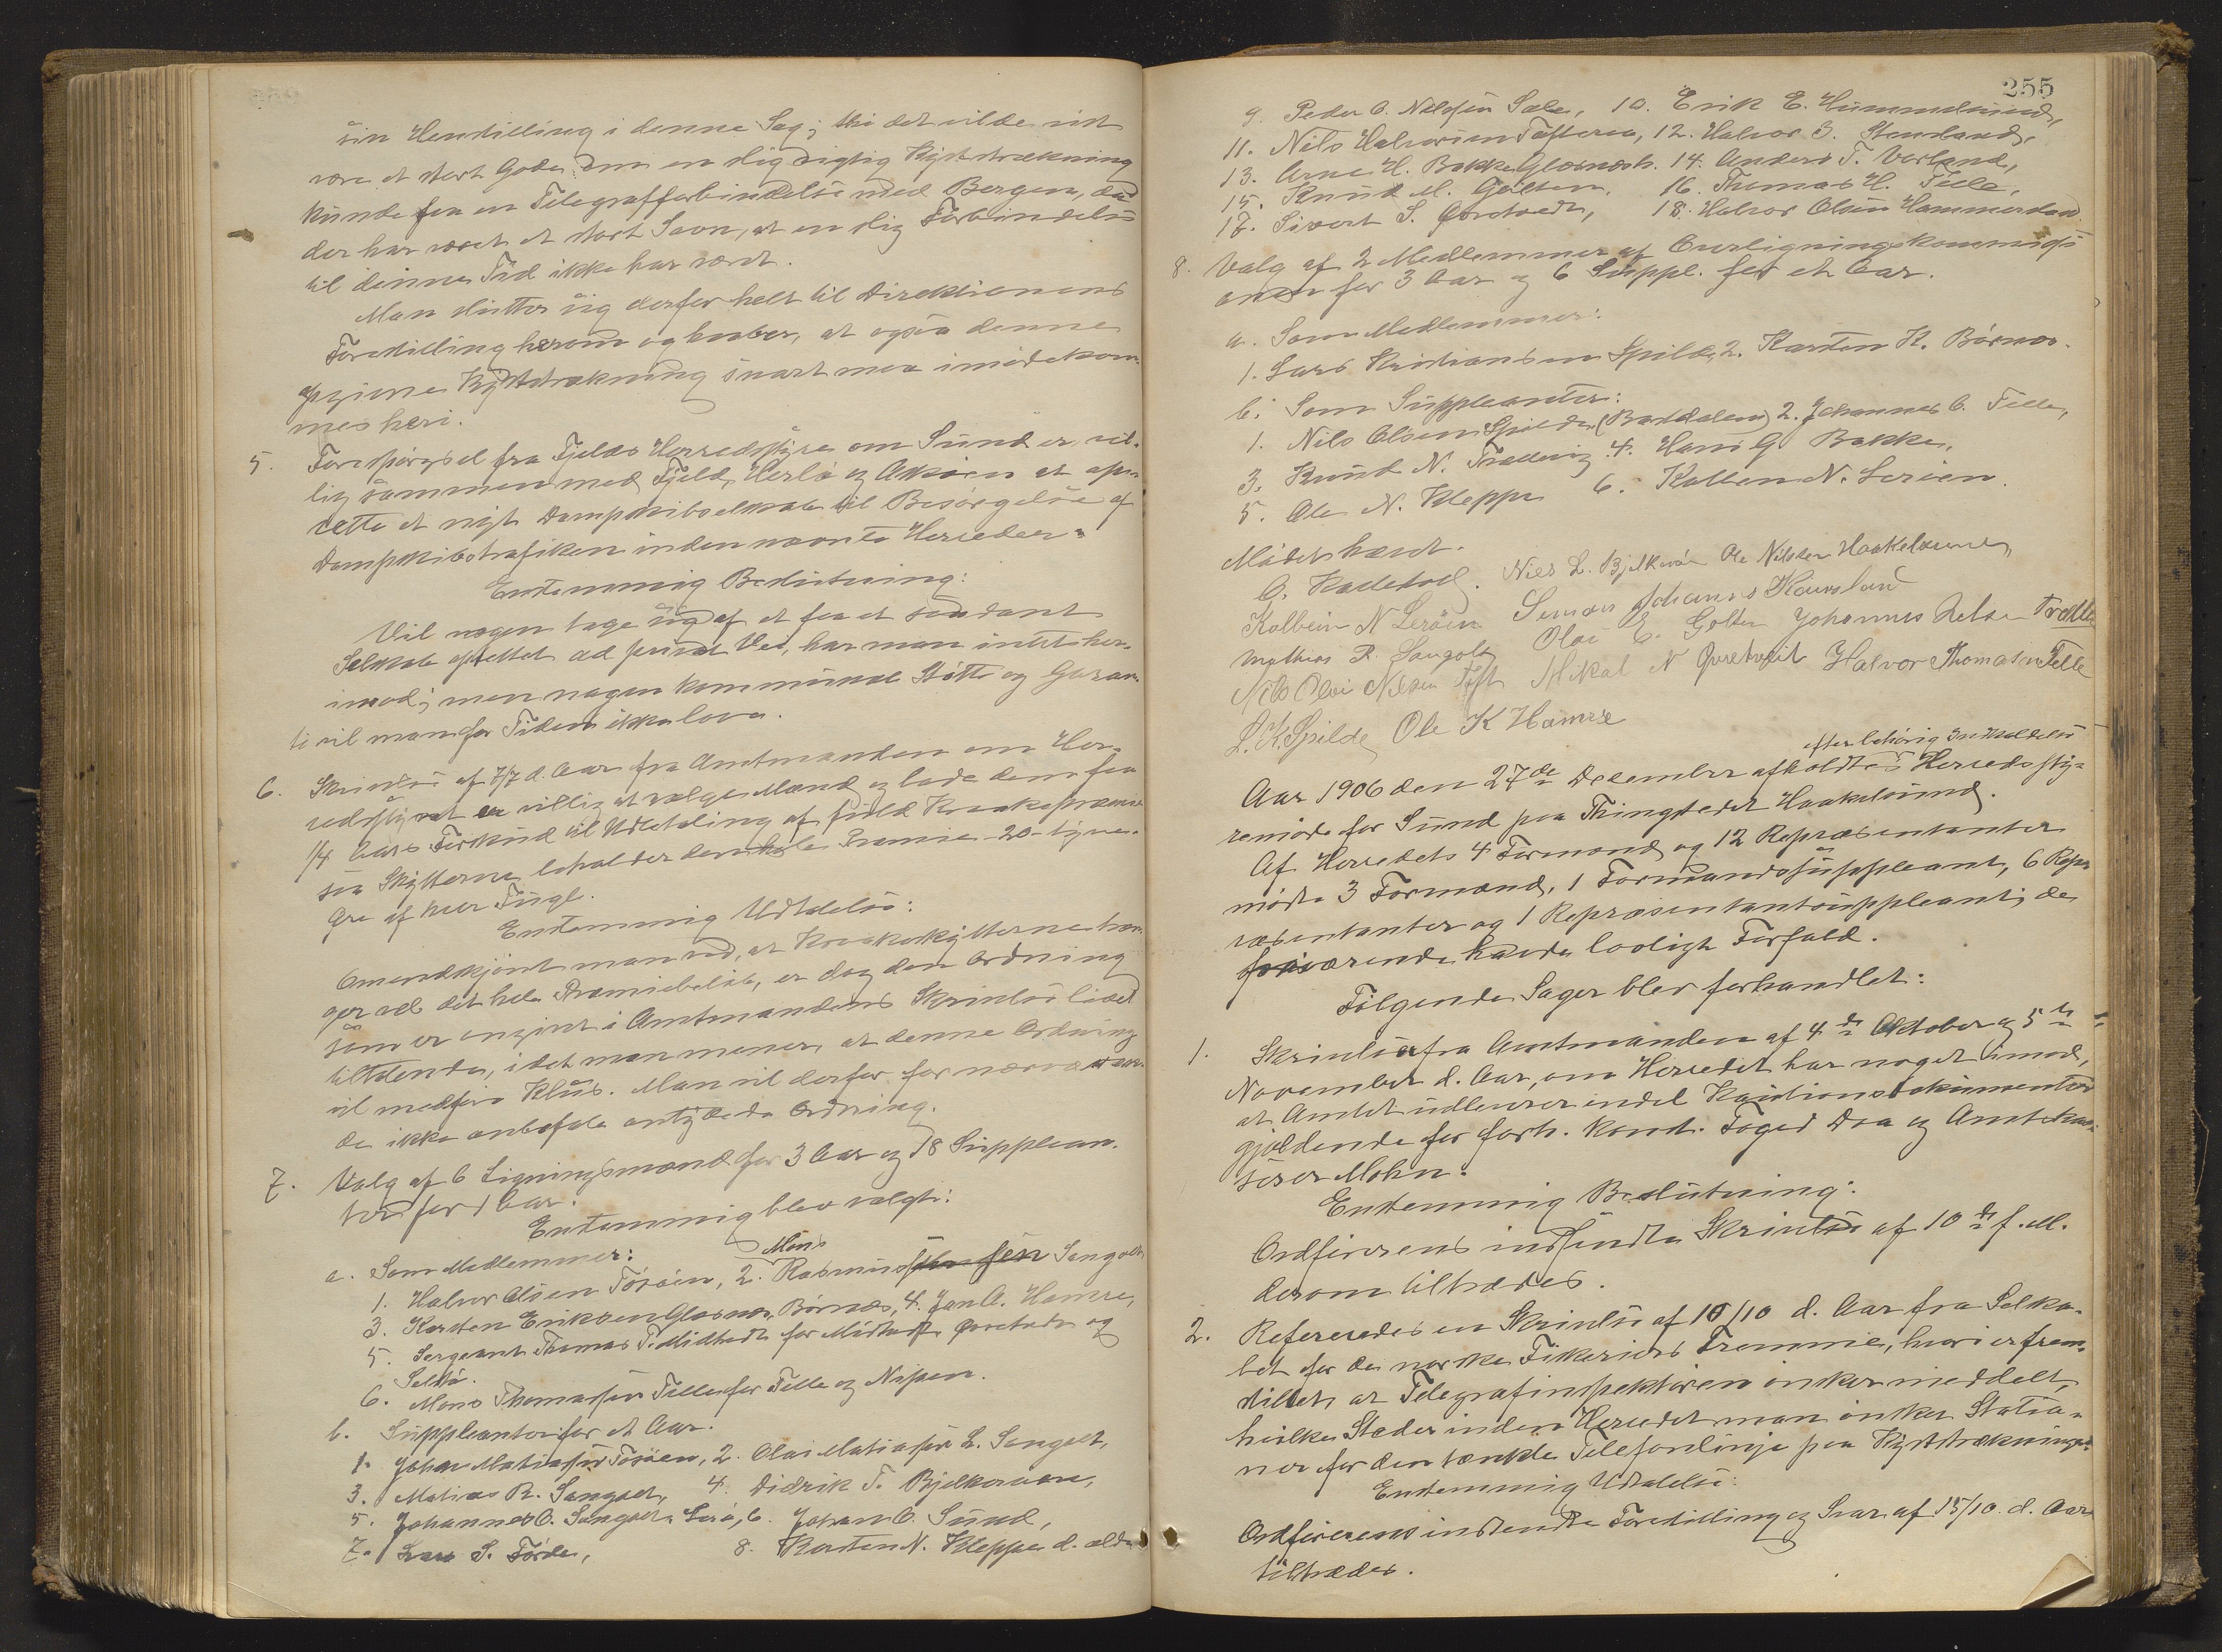 sin Henstilling i denne Sag; thi det vilde vist
være et stort Gode, om en slig vigtig Kyststrækning
kunde faa en Telegrafforbindelse med Bergen, da
der har været et stort Savn, at en slig Forbindelse
til denne Tid ikke har været.
Man slutter sig derfor helt til Direktionens
Forestilling herom og haaber, at ogsaa denne
Kyststrækning snart maa imødekom-
mes heri.
5. Forespørgsel fra Fjelds Herredsstyre om Sund er vil-
lig sammen med Fjeld, Herlø og Askøen at op-
rette et nyt Dampskibsselskab til Besørgelse af
Dampskibstrafiken inden nævnte Herreder.
Enstemmig Beslutning:
Vil nogen tage sig af at faa et saadant
Selskab oprettet ad privat Vei, har man intet her-
imod; men nogen kommunal Støtte og Garan-
ti vil man for Tiden ikke love.
6. Skrivelse af 7/7 d. Aar fra Amtmanden om Her-
redsstyret er villig at vælge Mænd og lade dem faa
1/4 Aars Forskud til Udbetaling af fuld Kraakepræmie
saa Skytterne beholder den hele Præmie -20- tyve
Øre af hver Fugl.
Enstemmig Udtalelse:
Omendskjønt man ved, at Kraakeskytterne træn-
ger vel det hele Præmiebeløb, er dog den Ordning
som er angivet i Amtmandens Skrivelse lidet
tiltalende, idet man mener, at denne Ordning
vil medføre Klus. Man vil derfor for nærværen-
de ikke anbefale antydede Ordning.
7. Valg af 6 Ligningsmænd for 3 Aar og 18 Supplean-
ter for 1 Aar.
Enstemmig blev valgt:
a. Som Medlemmer:
Mons
1. Halvor Olsen Tøsøen, 2. Rasmussen Sangolt
3. Karsten Eriksen Glesnæs, Børnæs, 4. Jan A. Hamre,
5. Sergeant Thomas T. Midttedt for Midttedt, Qvretvedt og
Selstø.
6. Mons Thomassen Telle for Telle og Nipen.
b. Suppleanter for et Aar.
1. Johan Matiassen Tøsøen, 2. Olai Matiassen L. Sangolt,
3. Matias R. Sangolt, 4. Didrik T. Bjelkerøen,
5. Johannes O. Sangolt, Lerø, 6. Johan O. Sund,
7. Lars S. Førde, 8. Karsten N. Kleppe d. ældre
255
9. Peder O. Nilssen Sæle, 10. Erik E. Hummelsund,
11. Nils Halvorsen Toftøren, 12. Halvor J. Steinsland,
13. Arne H. Bakke Glesnæsh. 14. Anders T. Vorland,
15. Knud M. Gølten, 16. Thomas H. Telle,
17. Sivert S. Qvretvedt, 18. Halvor Olsen Hammersland
8. Valg af 2 Medlemmer af Overligningskommissi-
onen for 3 Aar og 6 Suppl. for et Aar.
a. Som Medlemmer:
1. Lars Kristiansen Spilde, 2. Karsten K. Børnæs.
b. Som Suppleanter:
1. Nils Olsen Spilde (Barddalen) 2. Johannes O. Telle,
3. Knud N. Trællevig 4. Hans G. Bakke,
5. Ole N. Kleppe 6. Kolben N. Lerøen.
Mødet hævet.
O. Kallestad. Niels L. Bjelkerøe Ole Nilsen Haakelsund
Kolbein N Lerøen Simon Johannes Kausland
Mathias R. Sangolt Olai E. Golten Johannes Nelsen Trælle
Nils Olai Nilsen Toft Mikal N Qvretveit Halvor Thomasen Telle
L. K. Spilde Ole K Hamre
efter behørig Indkaldelse
Aar 1906 den 27de December afholdtes Herredssty-
remøde for Sund paa Thingstedet Haakelsund.
Af Herredets 4 Formænd og 12 Repræsentanter
mødte 3 Formænd, 1 Formandssuppleant, 6 Rep-
ræsentanter og 1 Repræsentantsuppleant; de
fraværende havde lovligt Forfald.
Følgende Sager blev forhandlet:
1. Skrivelse fra Amtmanden af 4de Oktober og 5te
November d. Aar, om Herredet har noget imod,
at Amtet udleverer endel Kautionsdokumenter
gjældende for forh. konst. Foged Daa og Amtskas-
serer Mohn.
Enstemmig Beslutning:
Ordførerens indsendte Skrivelse af 10de f. M.
derom tiltrædes.
2. Refereredes en Skrivelse af 10/10 d. Aar fra Selska-
bet for de norske Fiskeriers Fremme, hvori er frem-
stillet, at Telegrafinspektøren ønsker meddelt,
hvilke Steder inden Herredet man ønsker Statio-
ner for den tænkte Telefonlinje paa Kyststrækningen.
Enstemmig Udtalelse:
Ordførerens indsendte Forestilling og Svar af 15/10 d. Aar
tiltrædes.